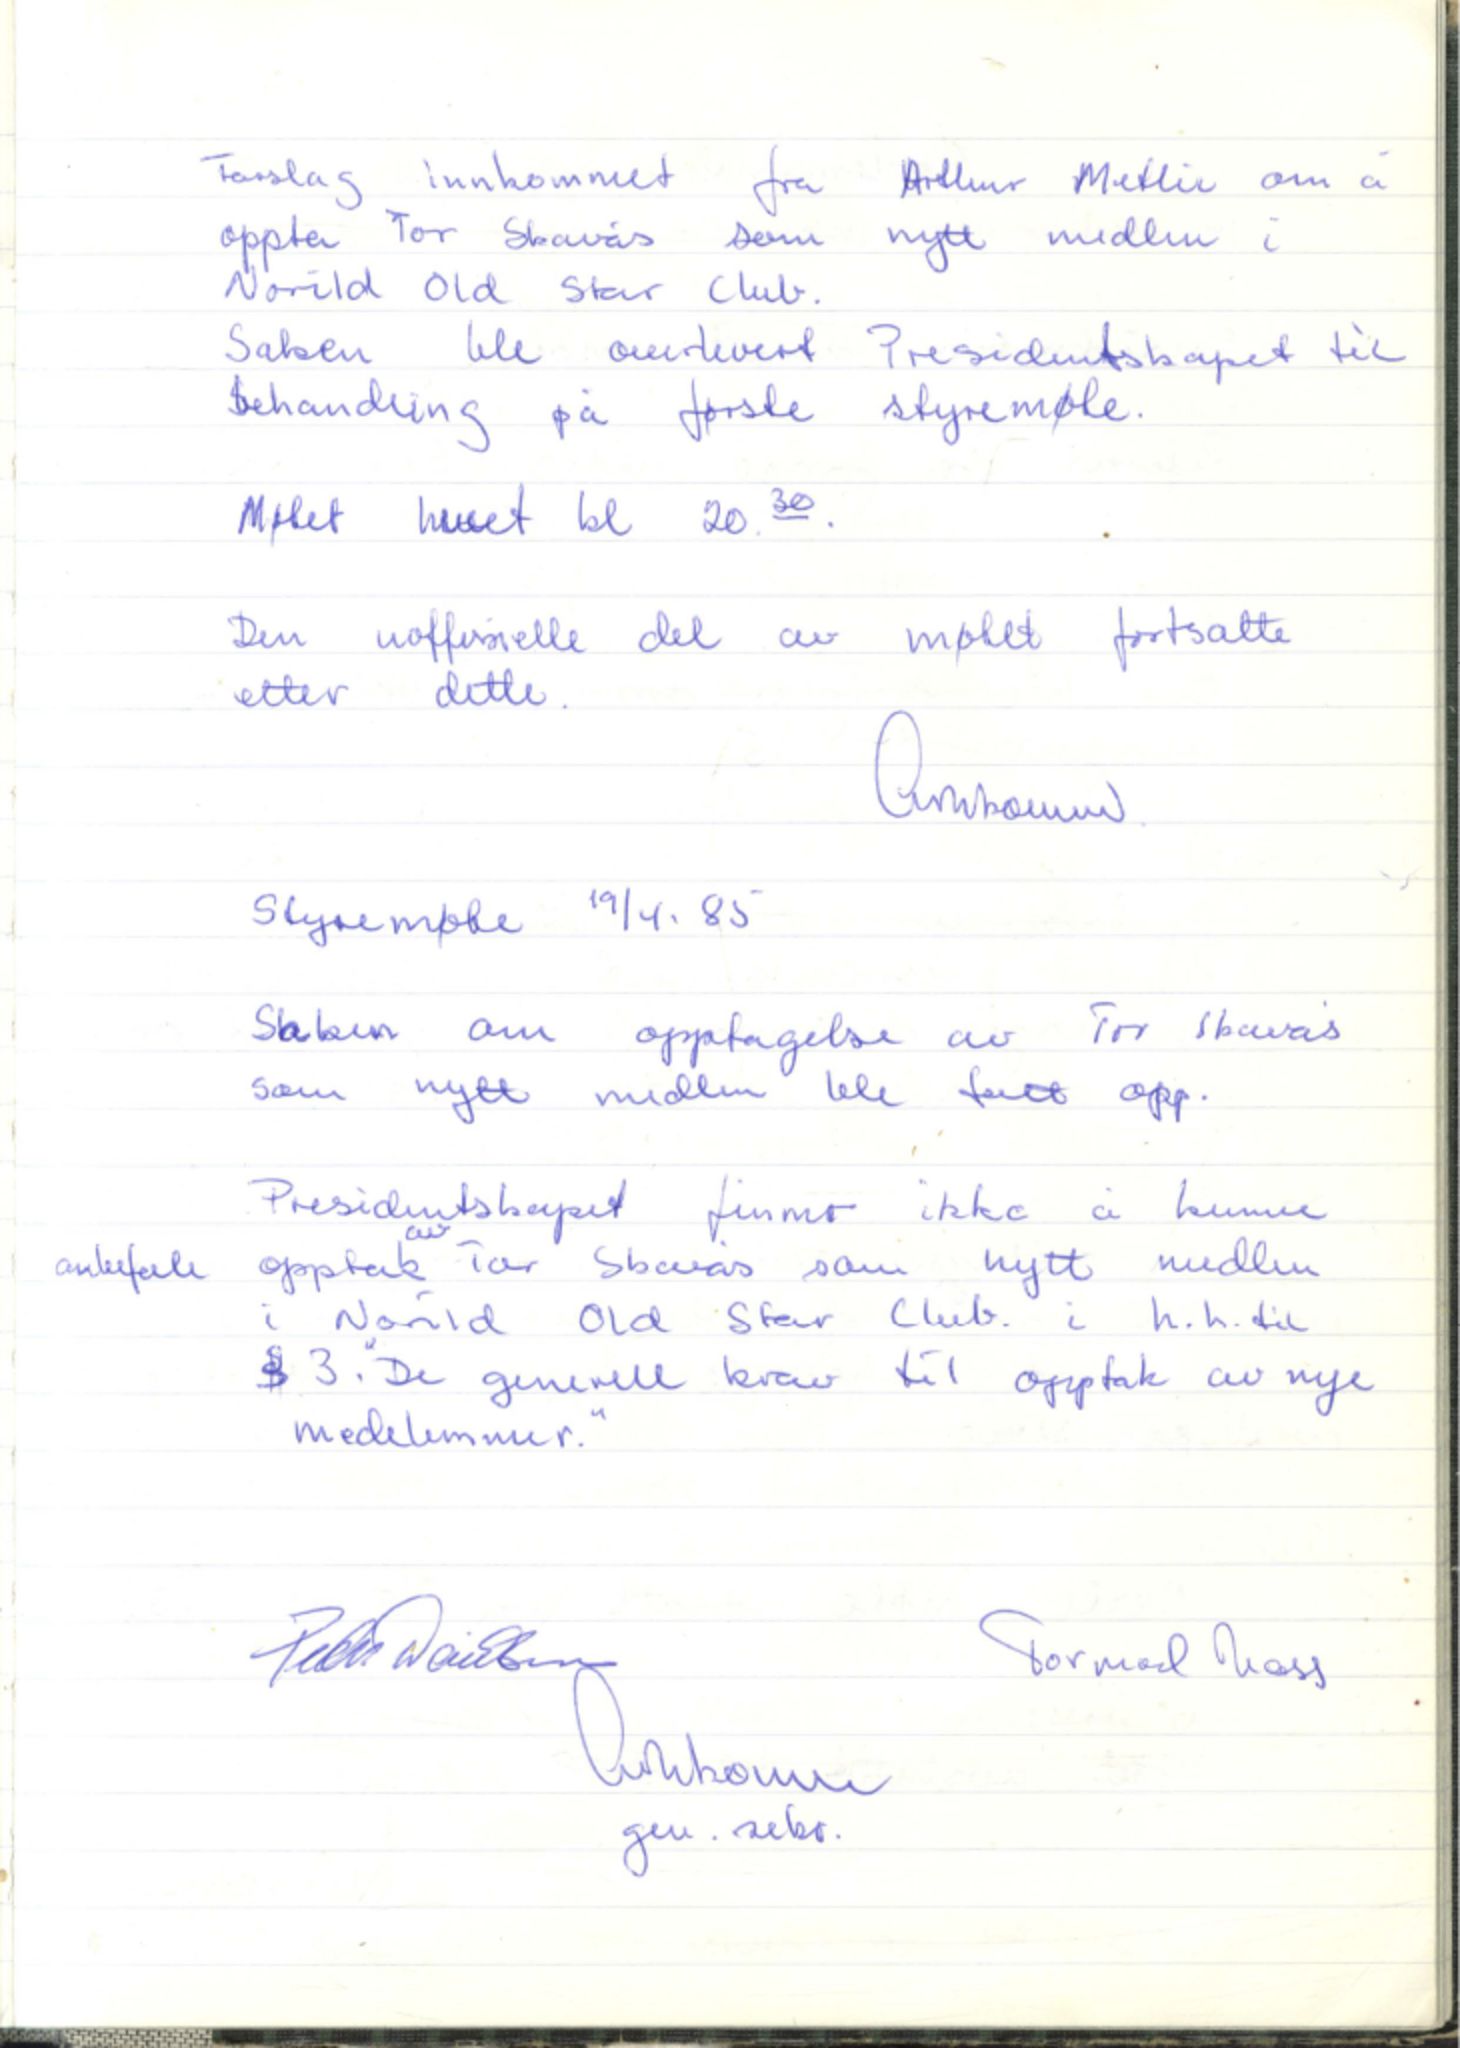 Forslag innkommet fra Arthur Metlie om å
oppta Tor Skavås som nytt medlem i
Norild Old Star Club.
Saken ble overlevert Presidentskapet til
behandling på første styremøte.
Møtet hevet kl 20.30.
Den uoffisielle del av møtet fortsatte
etter dette.
Styremøte 19/4. 85
Saken om opptagelse av Tor Skavås
som nytt medlem ble tatt opp.
Presidentskapet finner ikke å kunne
anbefale opptak av Tor Skavås som nytt medlem
i Norild Old Star Club. i h.h. til
§ 3. "De generell krav til opptak av nye
medlemmer."
Tormod Næss
gen. sekr.